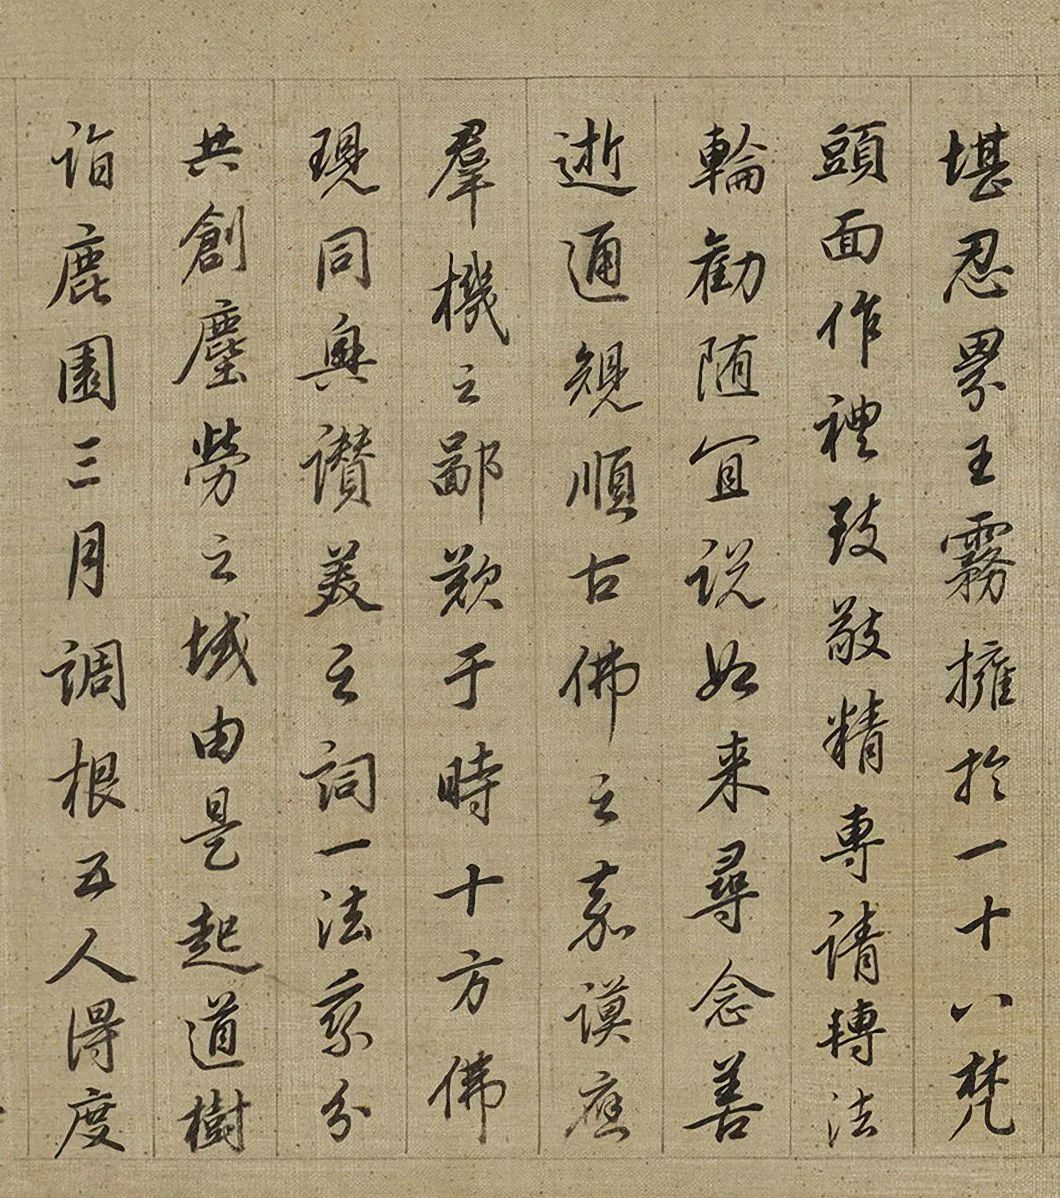 堪忍界王霧擁於一十八梵
頭面作禮致敬精專請轉法
輪勸随宜說如来尋念善
逝通規順古佛之嘉謨應
羣機之鄙欵于時十方佛
現同興讃美之詞一法乘分
共創塵勞之域由是起道樹
詣鹿園三月調根五人得度